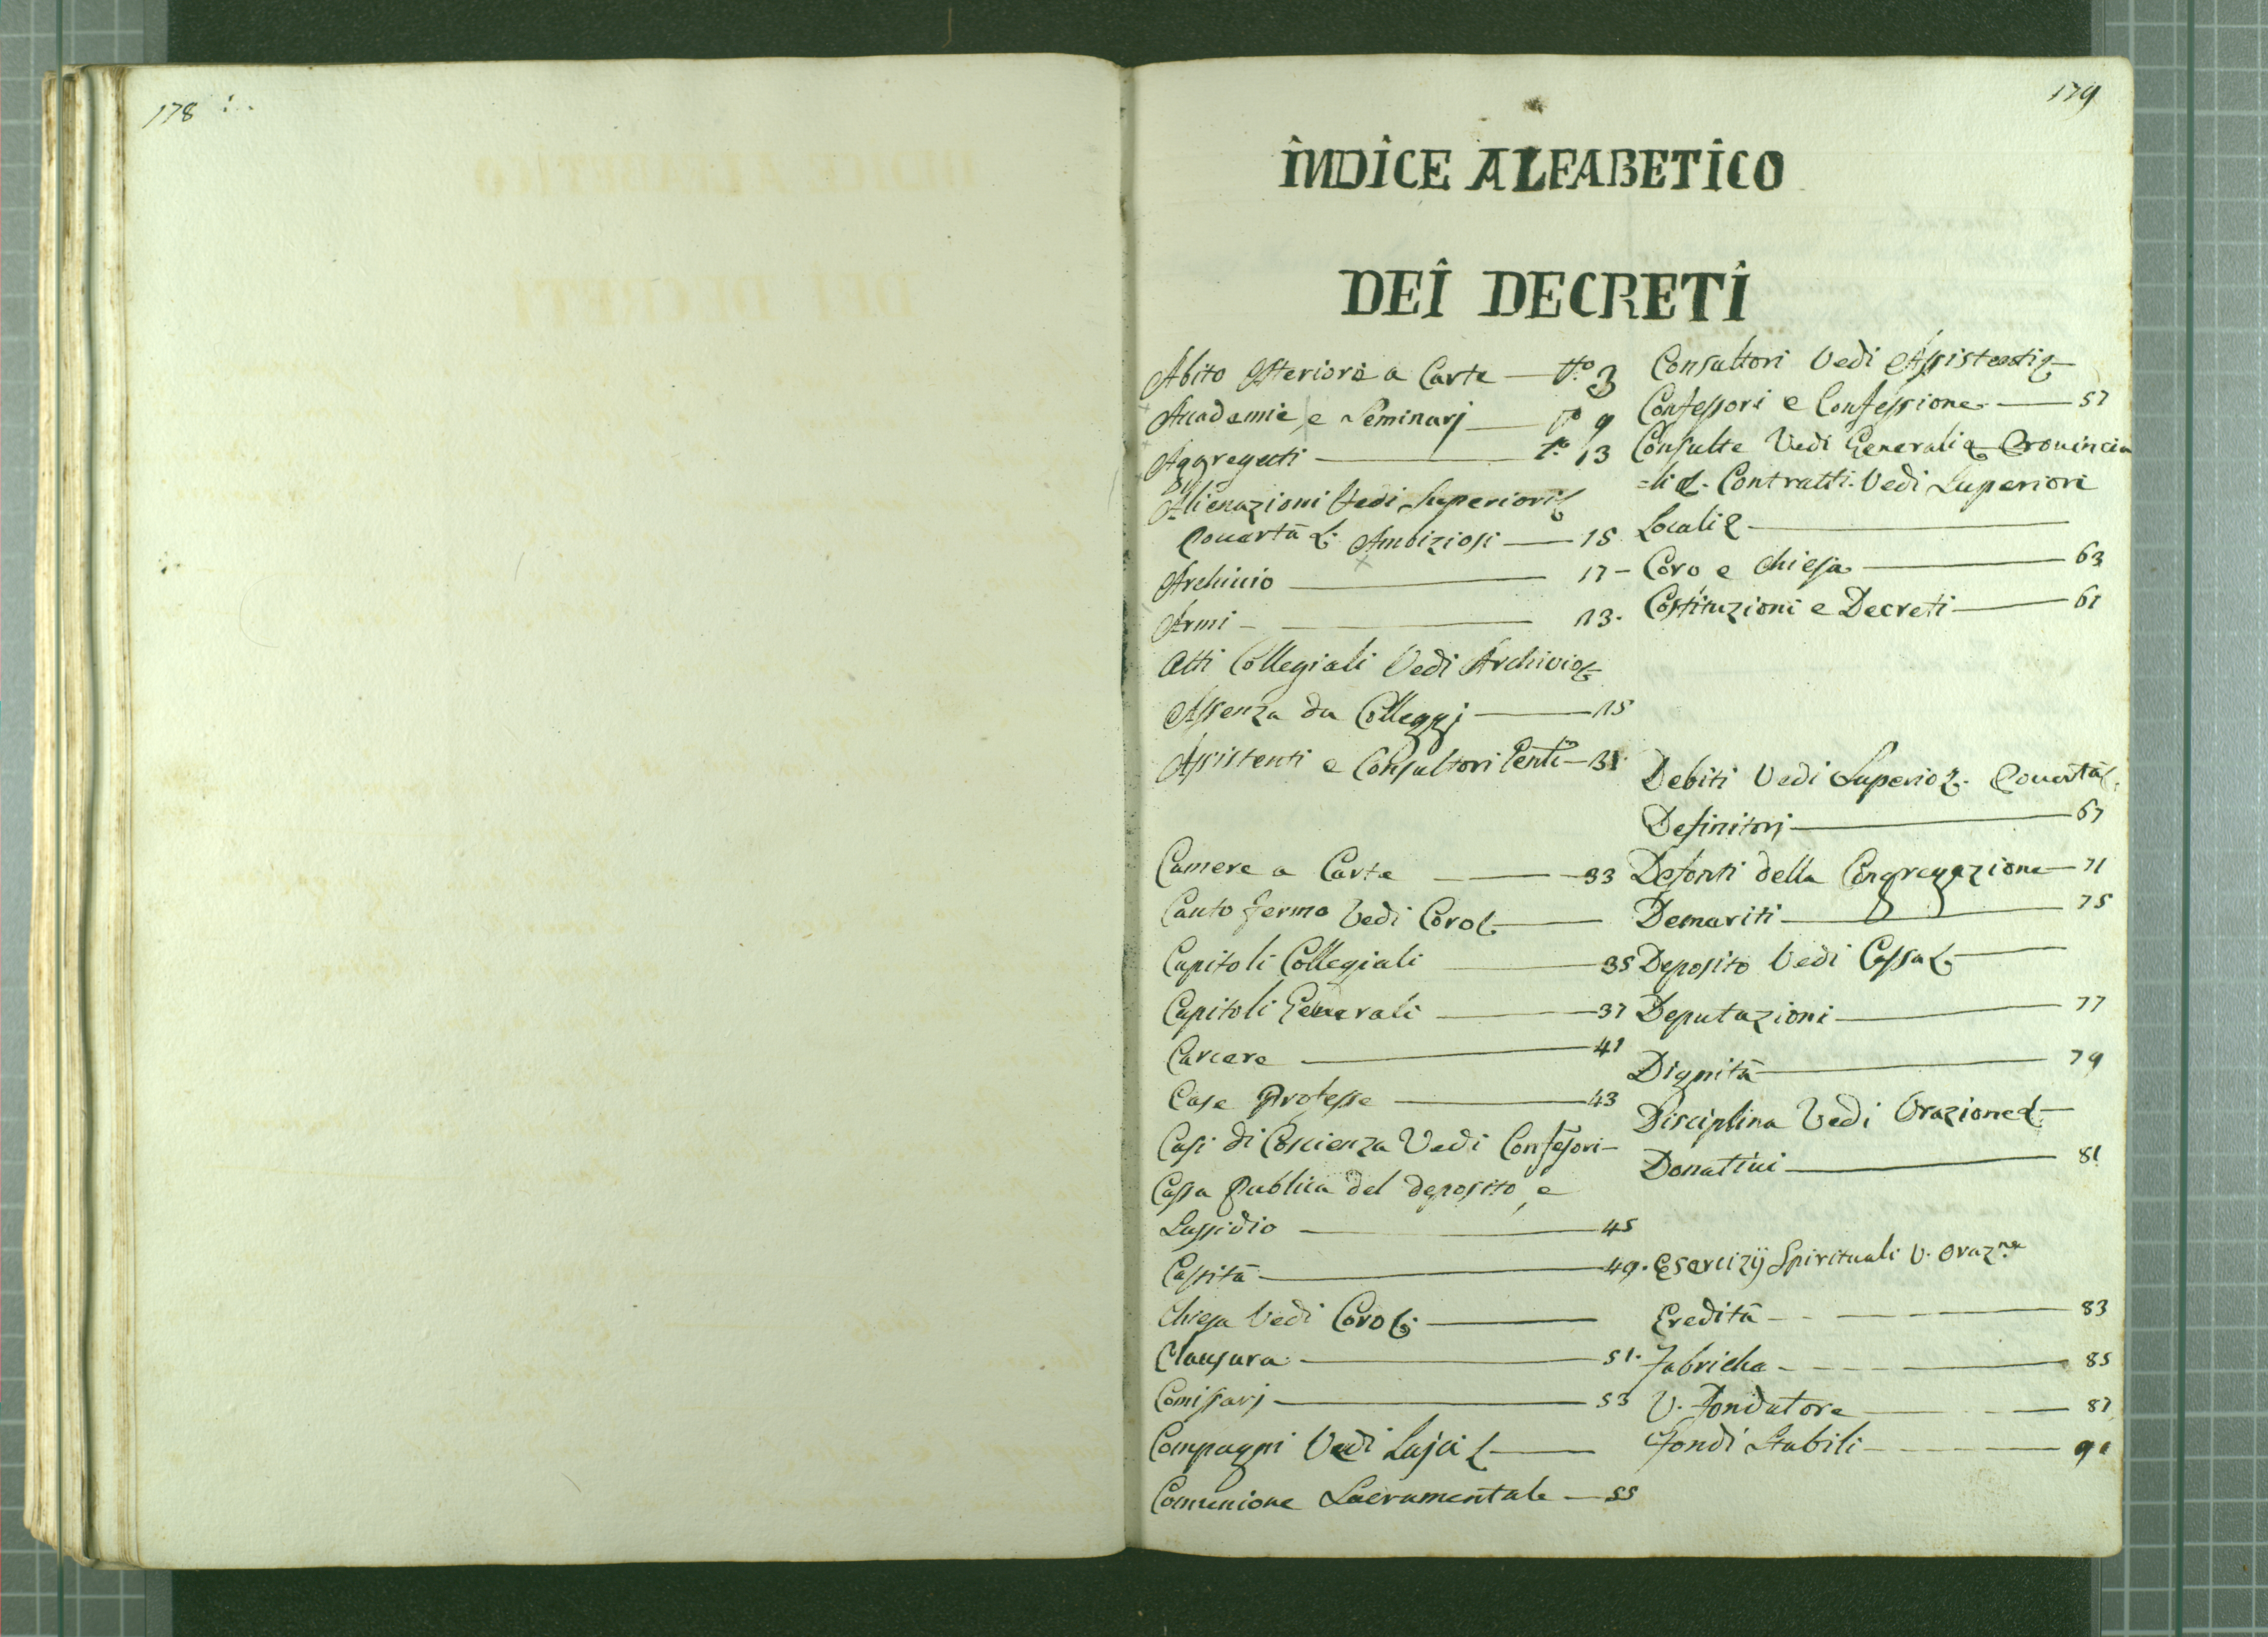 178
179
INDICE ALFABETICO
DEI DECRETI
Abito Esteriore a Carte — tto. 3
Academie, e Seminarj — 9
Aggregati — to. 13
Alienazioni Vedi Superiori
Povertà & Ambiziosi — 15
Archivio — 17
Armi — 13.
Atti Collegiali Vedi Archivio &
Assenza da Colleggj — 15
Assistenti e Consultori — 31
Camere a Carte — 33
Canto fermo Vedi Coro & —
Capitoli Collegiali — 35
Capitoli Generali — 37
Carcere — 41
Case Professe — 43
Casi di Coscienza Vedi Confesori —
Cassa Publica del deposito, e
Sussidio — 45
Castità — 49.
Chiesa Vedi Coro & —
Clausura — 51.
Comissarj — 53
Compagni Vedi Lajci & —
Comunione Sacramentale — 55
Consultori Vedi Assistenti &
Confessori e Confessione — 57
Consulte Vedi Generali & Provincia
=li &. Contratti. Vedi Superiori
Locali & —
Coro e Chiesa — 63
Costituzioni e Decreti — 61
Debiti Vedi Superio &. Povertà &.
Definitorj — 67
Defonti della Congregazione — 71
Demeriti — 75
Deposito Vedi Cassa & —
Deputazioni — 77
Dignità — 79
Disciplina Vedi Orazione & —
Donativi — 81
Esercizij Spirituali V. Oraz.ne
Eredità — 83
Fabriche — 85
V. Fondatore — 87
Fondi Stabili — 91